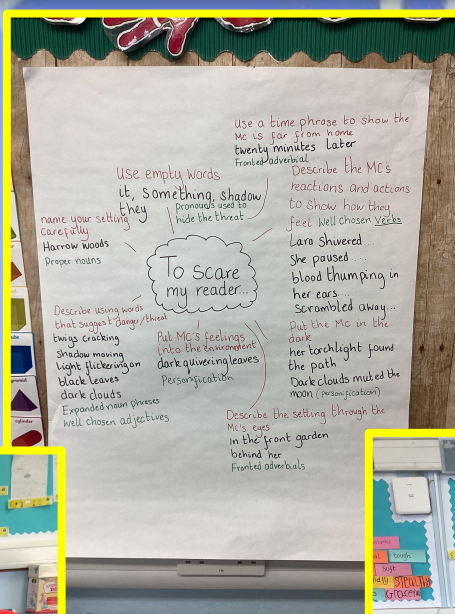 Use a time phrase to show the
MC is far from home
twenty minutes later
Fronted adverbial
Use empty words
it, something, shadow
they
Pronouns used to
hide the threat
Describe the MC's
reactions and actions
to show how they
feel Well chosen Verbs
Lara shivered...
She paused.....
blood thumping in
her ears....
Scrambled away...
name your setting
carefully
Harrow Woods
Proper nouns
To scare
my reader...
Describe using words
that suggest danger/threat
twigs cracking
Shadow moving
Light flickering on
black leaves
dark clouds
Expanded noun phrases
Well chosen adjectives
Put MC's feelings
into the environment
dark quivering leaves
Personification
Put the MC in the
dark
her torchlight found
the path
Dark clouds muted the
moon (personification)
Describe the setting through the
MC's eyes
In the front garden
behind her
Fronted adverbials
cylinder
tough
soft